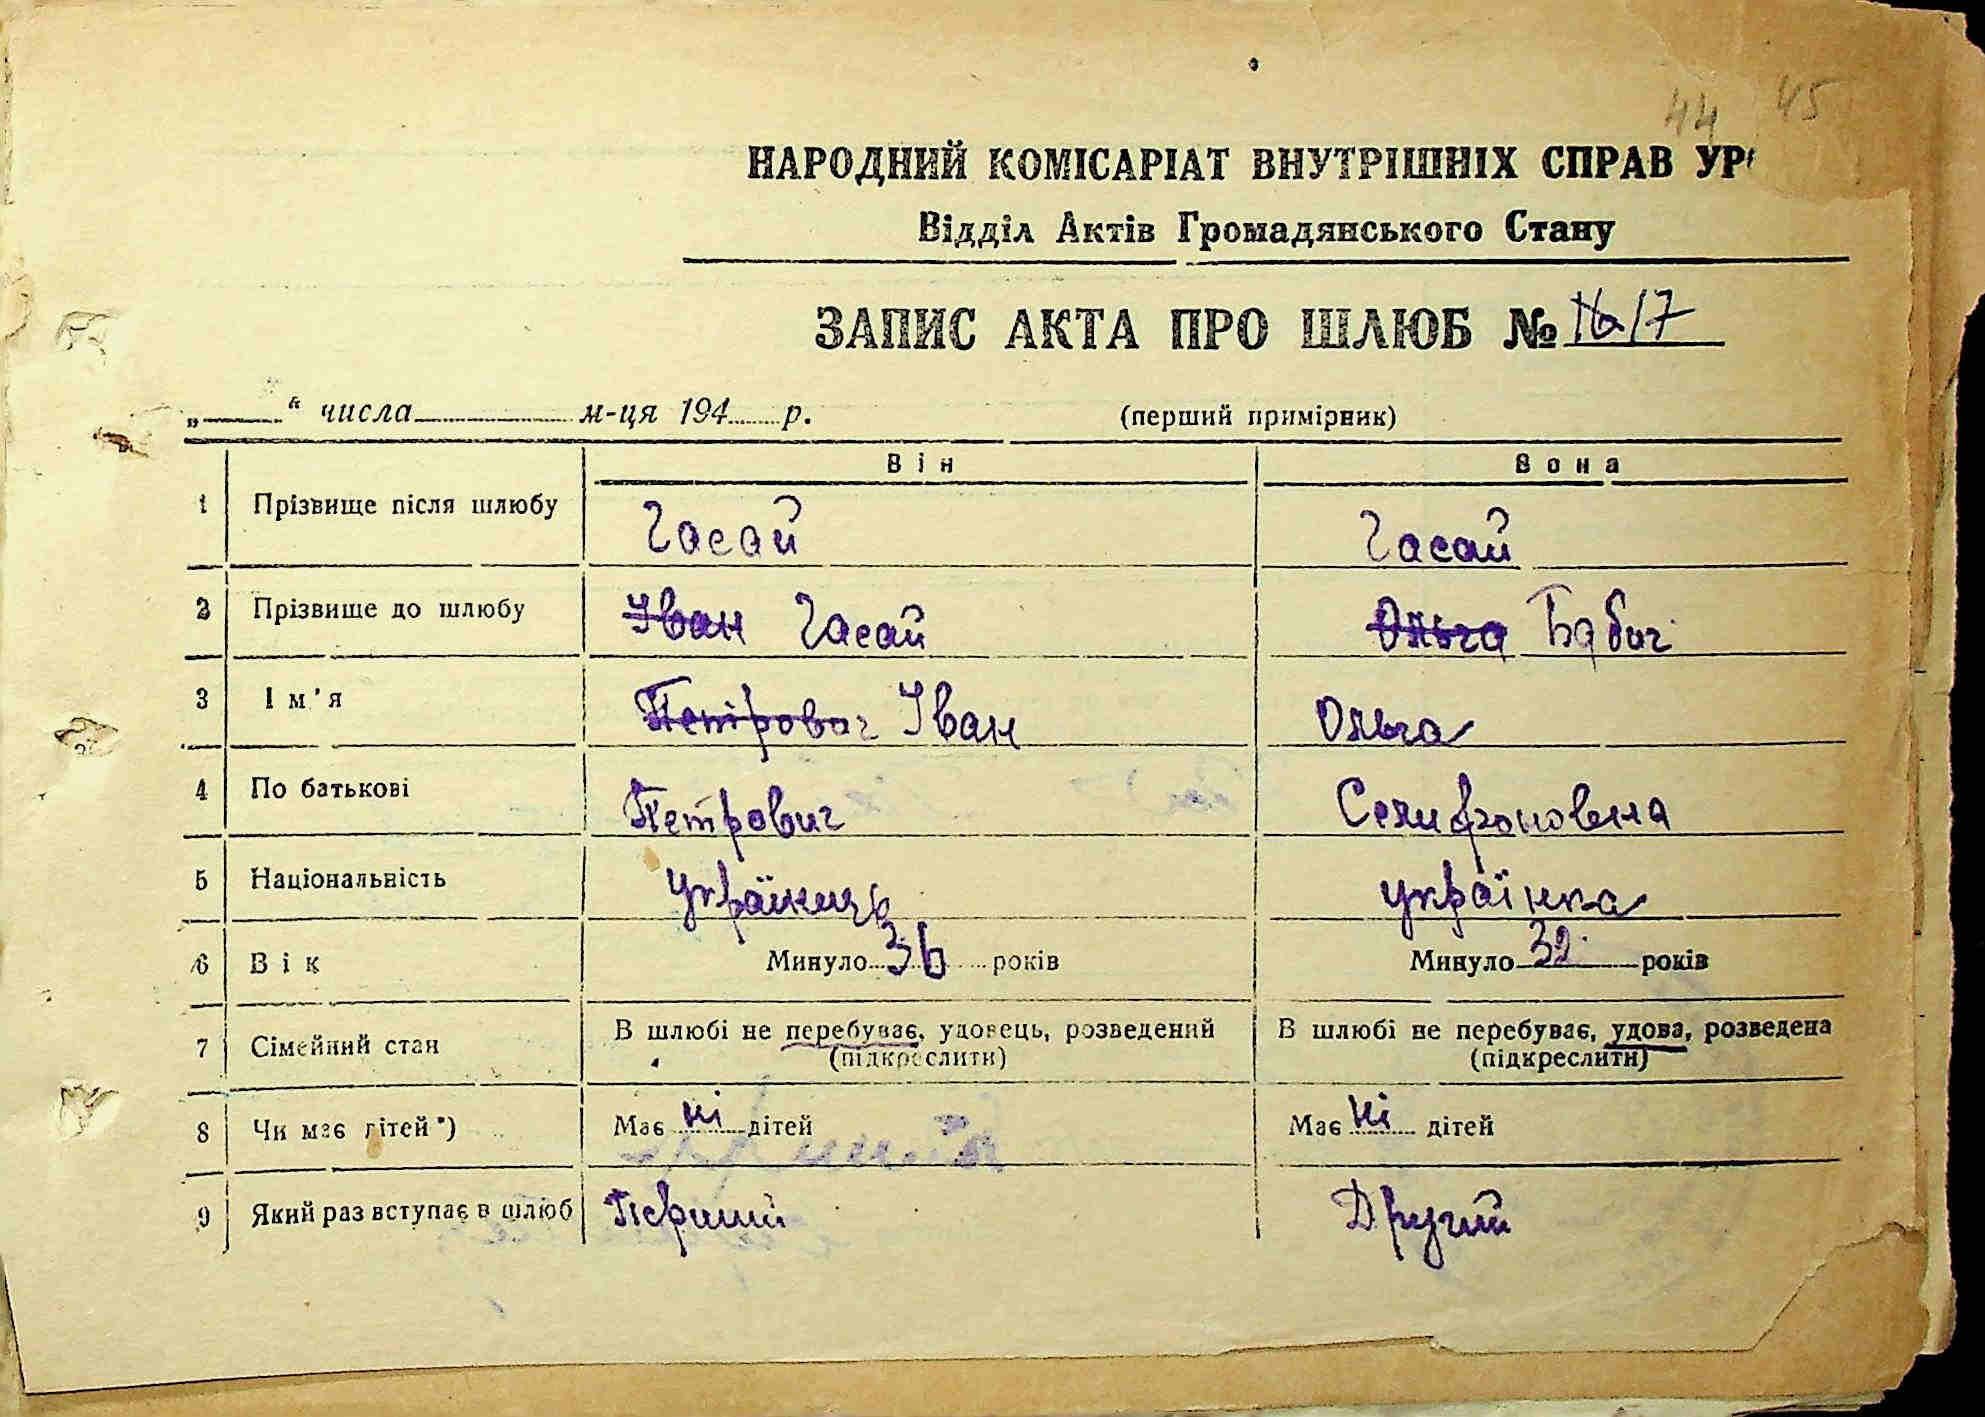 44 45
НАРОДНИЙ КОМІСАРІАТ ВНУТРІШНІХ СПРАВ УР
Відділ Актів Громадянського Стану
ЗАПИС АКТА ПРО ШЛЮБ № 17
„ “ числа м-ця 194 р. (перший примірник)
Він Вона
1 Прізвище після шлюбу Гасай Гасай
2 Прізвище до шлюбу Іван Гасай Ольга Бабич
3 Ім'я Петрович Іван Ольга
4 По батькові Петрович Селифоновна
5 Національність Українець українка
6 Вік Минуло 36 років Минуло 32 років
7 Сімейний стан В шлюбі не перебуває, удовець, розведений В шлюбі не перебуває, удова, розведена
(підкреслити) (підкреслити)
8 Чи має дітей*) Має ні дітей Має ні дітей
9 Який раз вступає в шлюб Перший Другий